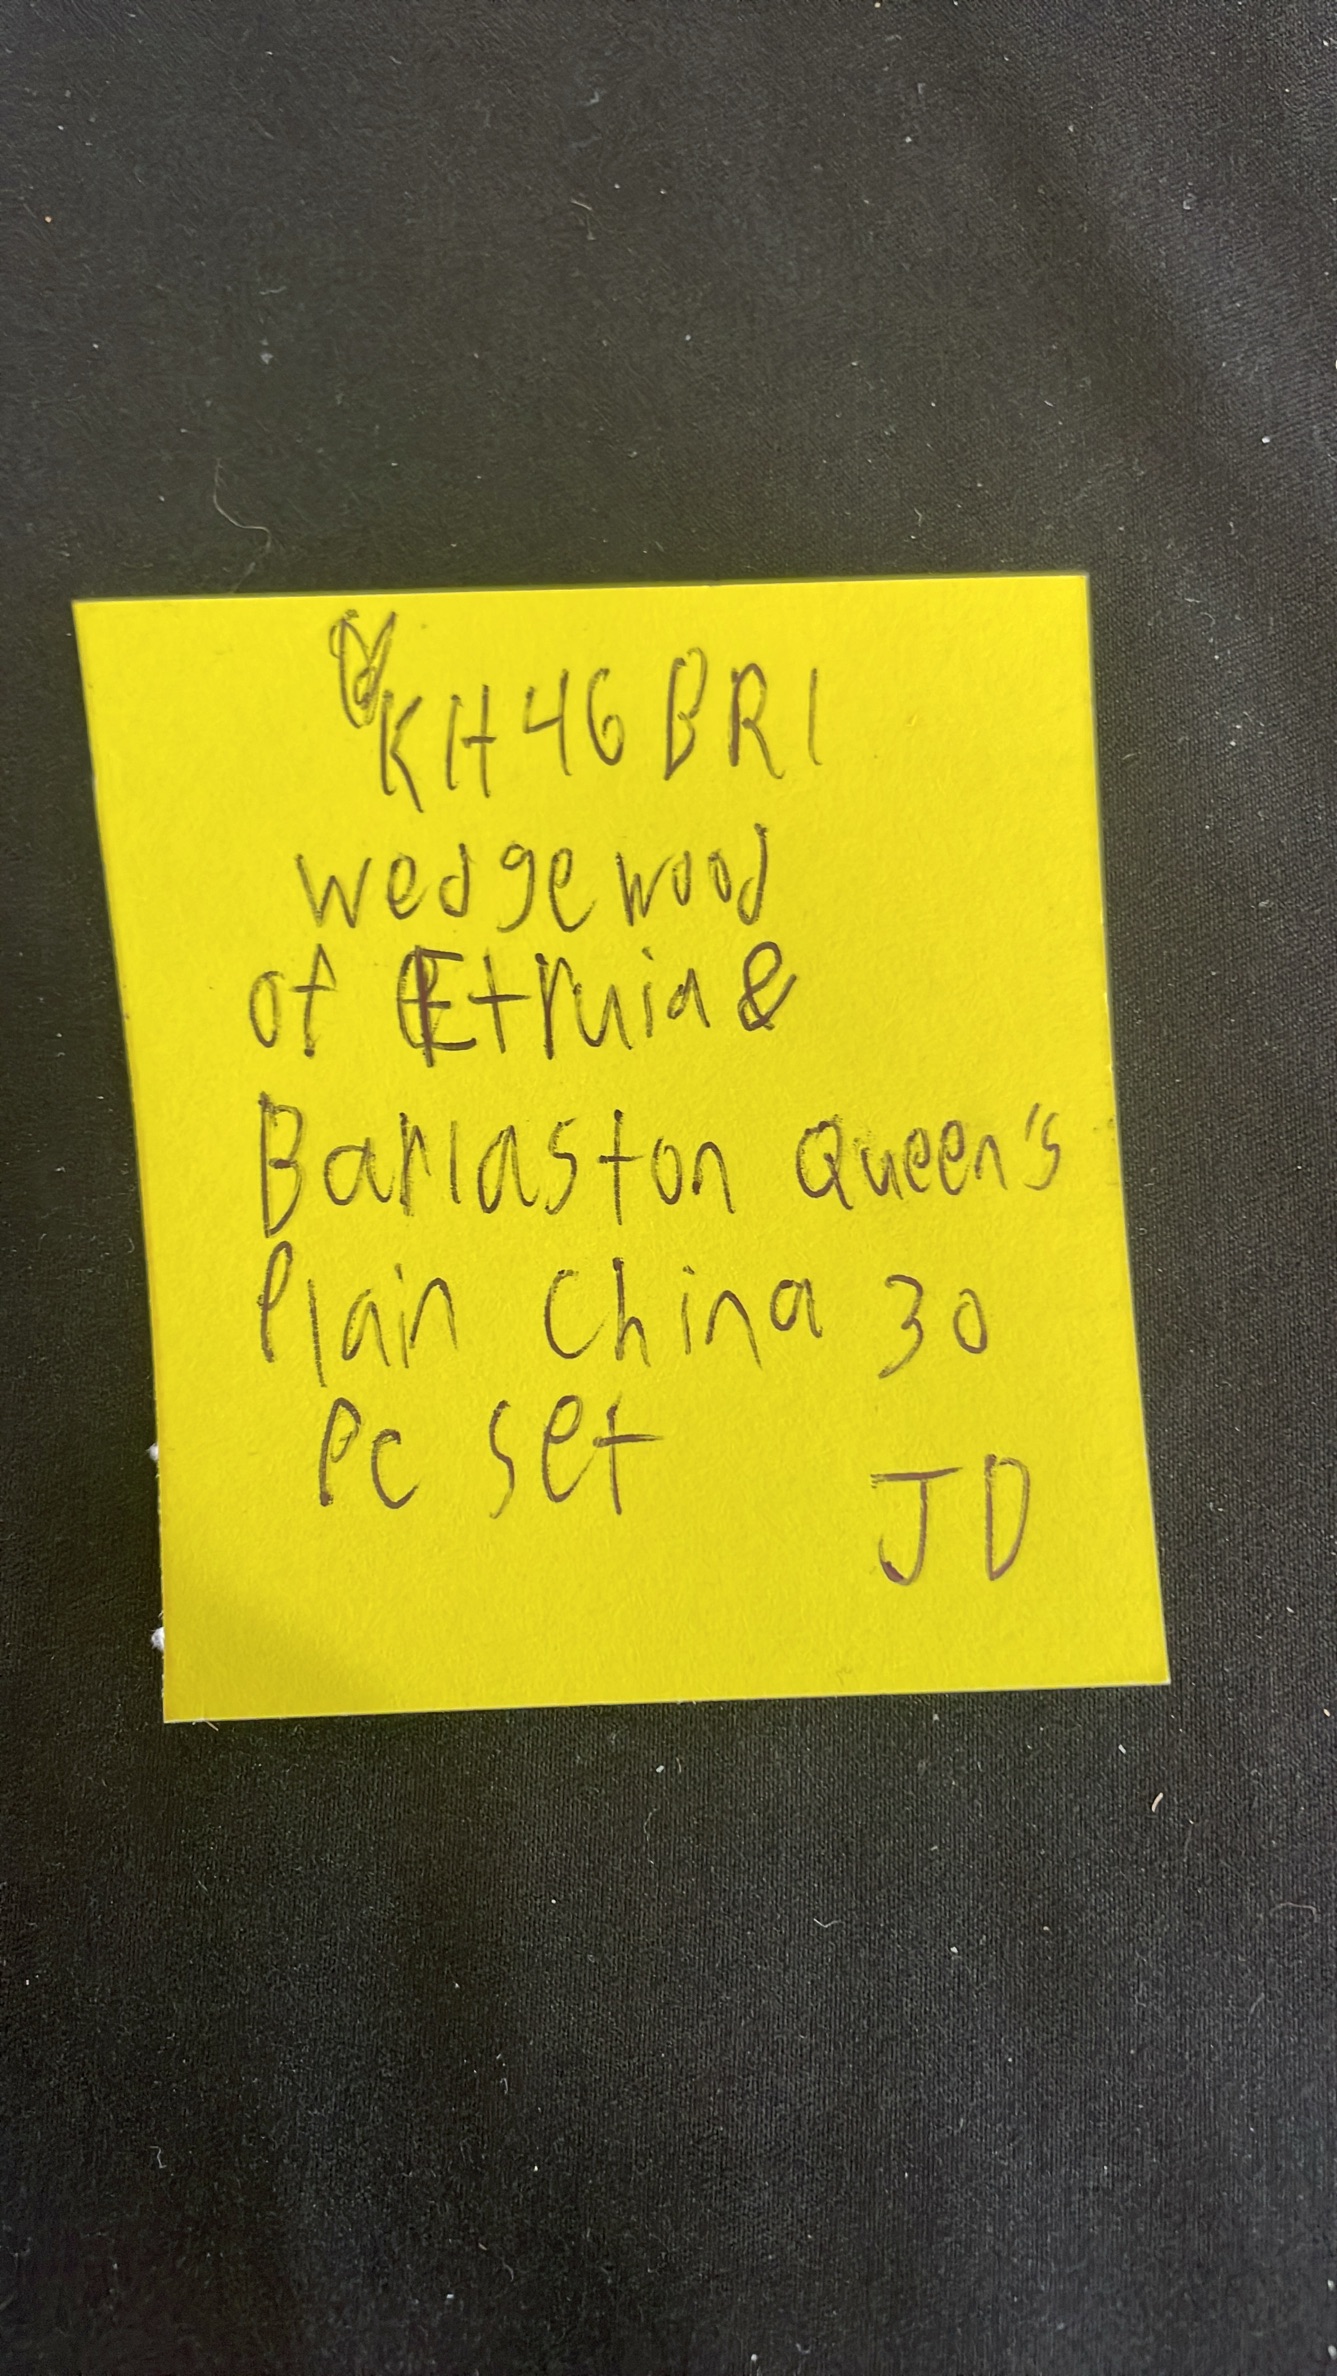 KH46BR1
wedgewood
of Etruia &
Barlaston Queen's
Plain China 30
Pc set
JD